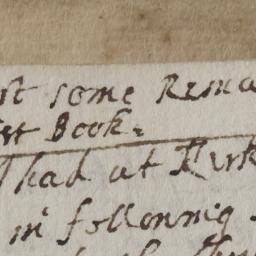 st some Rema
st Book.
I had at Kirk
in following